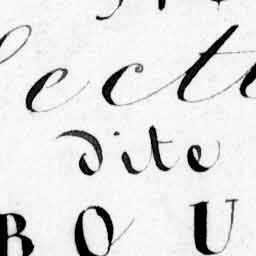 lecti
dite
BOU